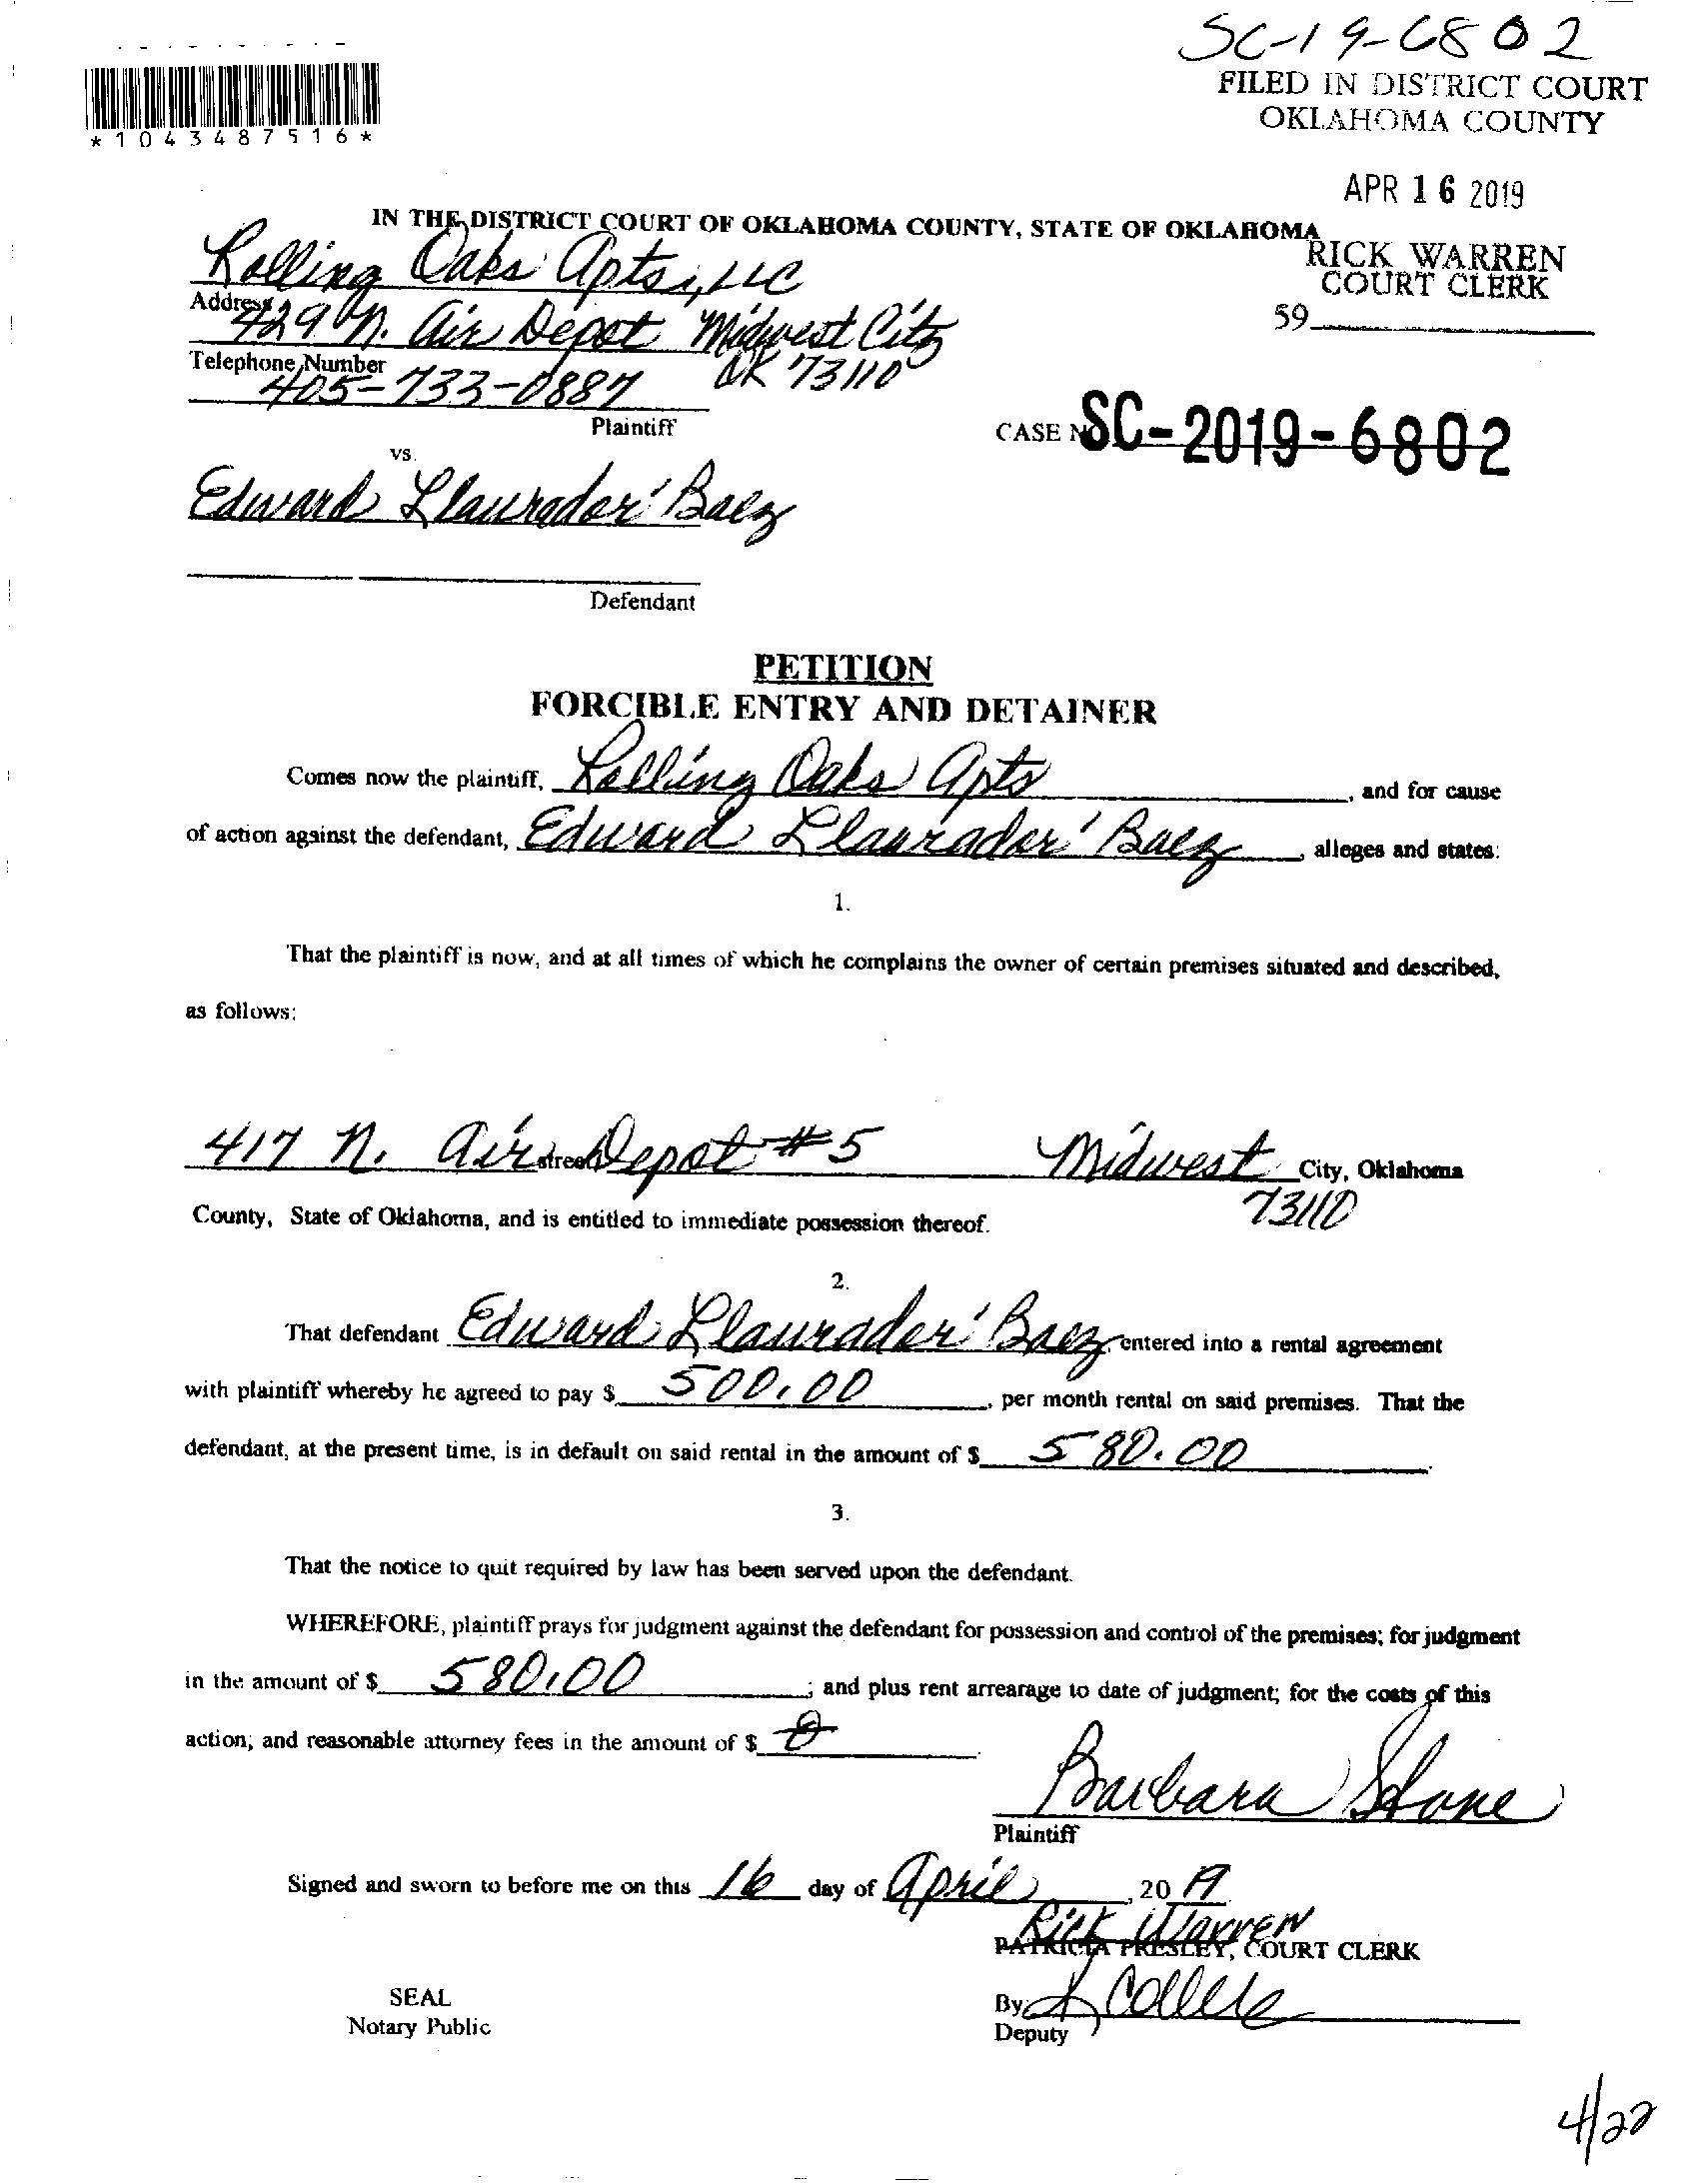 SC-19-6802
FILED IN DISTRICT COURT
OKLAHOMA COUNTY
*1043487516*
APR 16 2019
IN THE DISTRICT COURT OF OKLAHOMA COUNTY, STATE OF OKLAHOMA
RICK WARREN
COURT CLERK
59
Rolling Oaks Apts, LLC
Address
429 N. Air Depot Midwest City
OK 73110
Telephone Number
405-733-0887
Plaintiff
CASE NO SC-2019-6802
vs.
Edward Llaurador' Baez
Defendant
PETITION
FORCIBLE ENTRY AND DETAINER
Comes now the plaintiff, Rolling Oaks Apts, and for cause
of action against the defendant, Edward Llaurador' Baez, alleges and states:
1.
That the plaintiff is now, and at all times of which he complains the owner of certain premises situated and described,
as follows:
417 N. Air Depot #5 street Midwest City, Oklahoma
73110
County, State of Oklahoma, and is entitled to immediate possession thereof.
2.
That defendant Edward Llaurador' Baez, entered into a rental agreement
with plaintiff whereby he agreed to pay $ 500.00, per month rental on said premises. That the
defendant, at the present time, is in default on said rental in the amount of $ 580.00.
3.
That the notice to quit required by law has been served upon the defendant.
WHEREFORE, plaintiff prays for judgment against the defendant for possession and control of the premises; for judgment
in the amount of $ 580.00; and plus rent arrearage to date of judgment; for the costs of this
action; and reasonable attorney fees in the amount of $ 0.
Barbara Stone
Plaintiff
Signed and sworn to before me on this 16 day of April, 2019
Rick Warren
PATRICIA PRESLEY, COURT CLERK
SEAL
Notary Public
By
Deputy
4/22